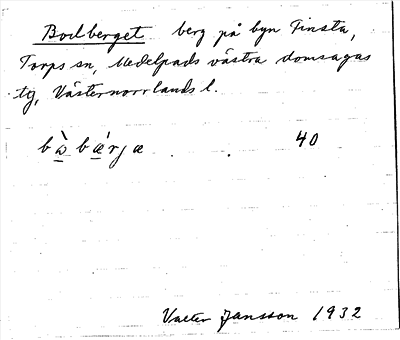 Bodberget berg på byn Finsta,
Torps sn, Medelpads västra domsagas
tg, Västernorrlands l.
bɷ̀bǽrjæ 40
Valter Jansson 1932